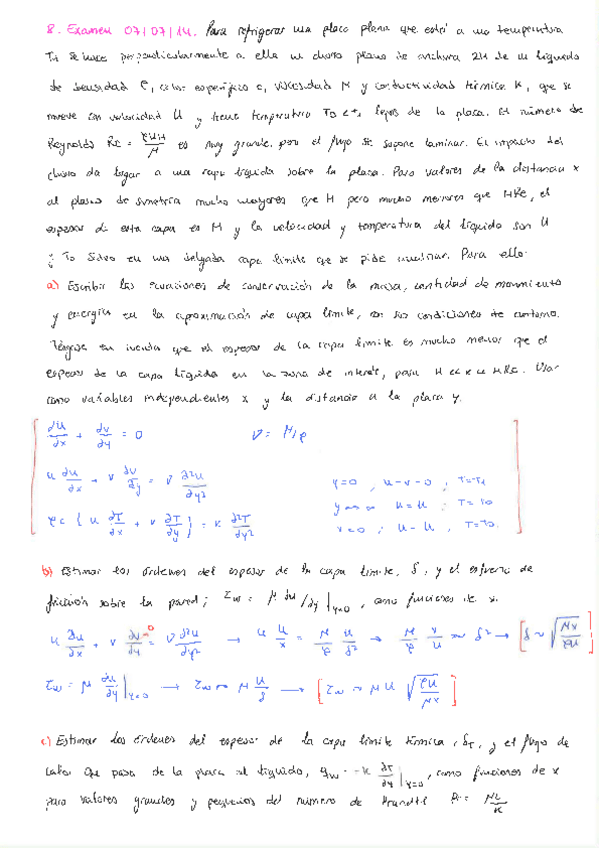 8. Examen 07/07/14. Para refrigerar una placa plana que está a una temperatura
T₁ se lanza perpendicularmente a ella un chorro plano de anchura 2H de un líquido
de densidad ρ, calor específico c, viscosidad μ y conductividad térmica K, que se
mueve con velocidad U y tiene temperatura T₀ < T₁ lejos de la placa. El número de
Reynolds Re = ρUH/μ es muy grande, pero el flujo se supone laminar. El impacto del
chorro da lugar a una capa líquida sobre la placa. Para valores de la distancia x
al plano de simetría mucho mayores que H pero mucho menores que HRe, el
espesor de esta capa es H y la velocidad y temperatura del líquido son U
y T₀ salvo en una delgada capa límite que se pide analizar. Para ello:
a) Escribir las ecuaciones de conservación de la masa, cantidad de movimiento
y energía en la aproximación de capa límite, con sus condiciones de contorno.
Téngase en cuenta que el espesor de la capa límite es mucho menor que el
espesor de la capa líquida en la zona de interés, para H << x << HRe. Usar
como variables independientes x y la distancia a la placa y.
∂u/∂x + ∂v/∂y = 0 ν = μ/ρ
u ∂u/∂x + v ∂v/∂y = ν ∂²u/∂y² y=0, u=v=0 ; T=T₁
y→∞ u=U ; T=T₀
ρc { u ∂T/∂x + v ∂T/∂y } = K ∂²T/∂y² x=0 ; u=U, T=T₀.
b) Estimar los órdenes del espesor de la capa límite, δ, y el esfuerzo de
fricción sobre la pared; τw = μ ∂u/∂y|y=0, como funciones de x.
u ∂u/∂x + v ∂v/∂y = ν ∂²u/∂y² → u u/x = μ/ρ u/δ² → μ/ρ x/u ~ δ² → [δ ~ √(μx/ρU)]
τw = μ ∂u/∂y|y=0 → τw ~ μ U/δ → [τw ~ μU √(ρU/μx)]
c) Estimar los órdenes del espesor de la capa límite térmica, δT, y el flujo de
calor que pasa de la placa al líquido, qw = -K ∂T/∂y|y=0, como funciones de x
para valores grandes y pequeños del número de Prandtl Pr = μc/K